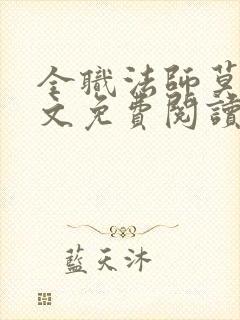 全職法師莫
文免費閱讀
藍天沐